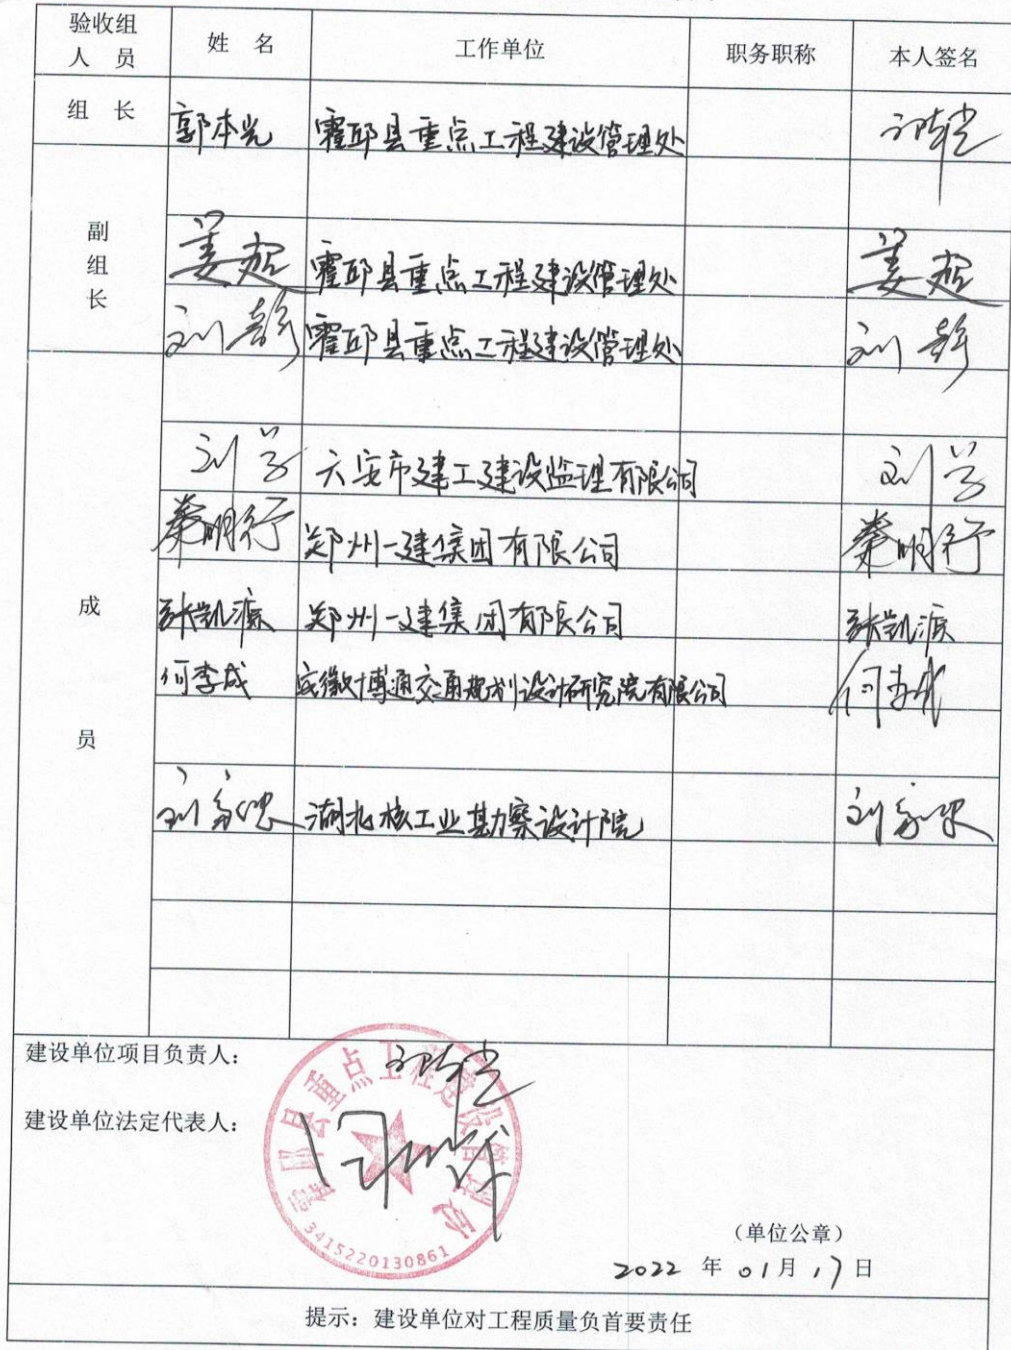 验收组
人 员
姓 名
工作单位
职务职称
本人签名
组 长
郭本光 霍邱县重点工程建设管理处
副
组
长
姜超 霍邱县重点工程建设管理处 姜超
刘彭 霍邱县重点工程建设管理处 刘彭
成
员
刘学 六安市建工建设监理有限公司 刘学
秦明行 郑州一建集团有限公司 秦明行
张凯源 郑州一建集团有限公司 张凯源
何李成 安徽博通交通规划设计研究院有限公司 何李成
刘家忠 湖北核工业勘察设计院
建设单位项目负责人:
建设单位法定代表人:
霍邱县重点工程建设管理处
3415220130861
(单位公章)
2022 年 01月 17日
提示:建设单位对工程质量负首要责任